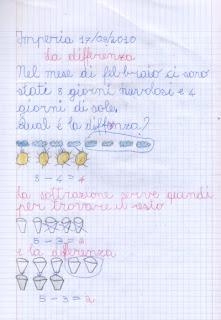 Imperia 17/03/2010
La differenza
Nel mese di febbraio ci sono
stati 8 giorni nuvolosi e 4
giorni di sole.
Qual è la differenza?
8 - 4 = 4
La sottrazione serve quindi
per trovare il resto
5 - 3 = 2
e la diferenza
5 - 3 = 2